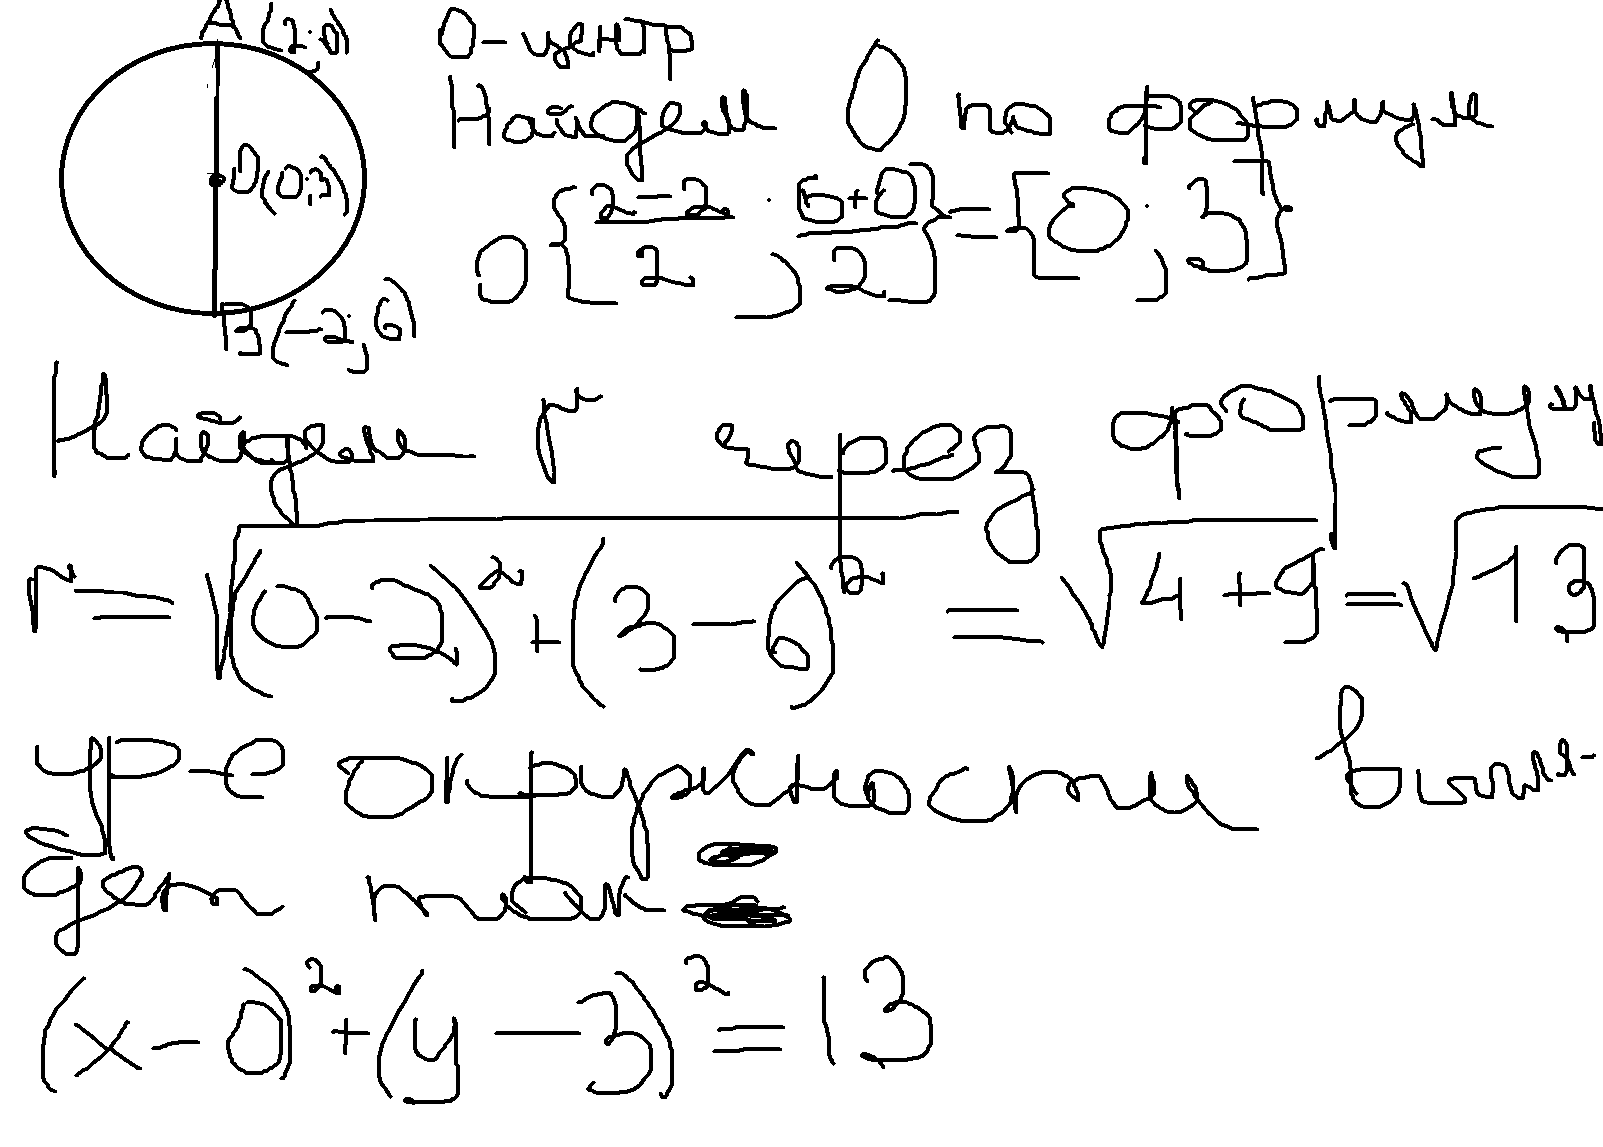 A(2;0)
O-центр
Найдем O по формуле
O(0;3)
O{2-2/2; 6+0/2}=[0;3]
B(-2;6)
Найдем r через формулу
r=√(0-2)²+(3-6)²=√4+9=√13
ур-е окружности выгля-
дет так
(x-0)²+(y-3)²=13